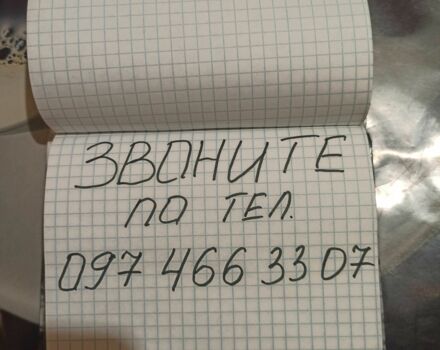 ЗВОНИТЕ
ПО ТЕЛ.
097 466 33 07